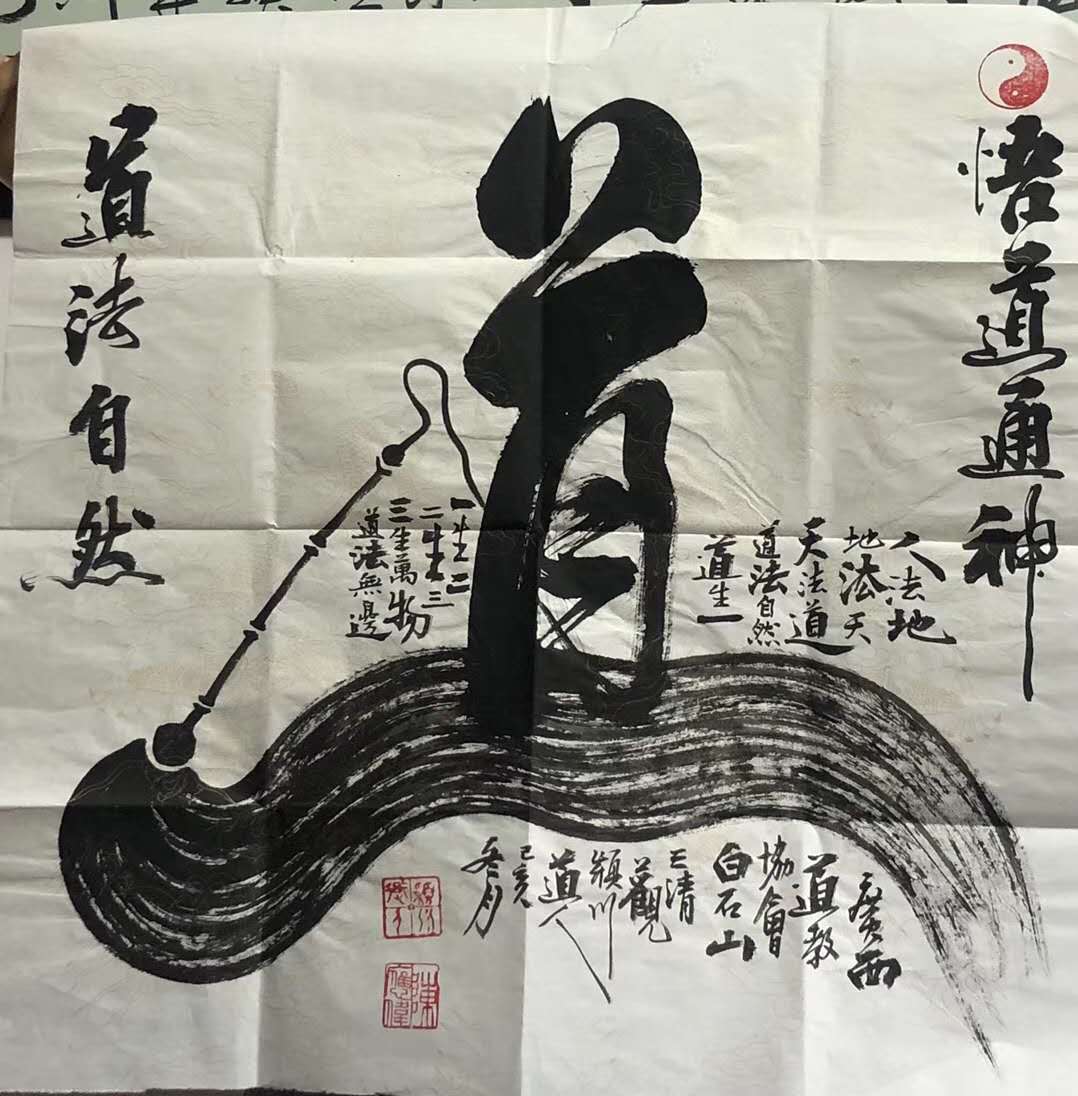 悟道通神
道
人法地
地法天
天法道
道法自然
道生一
一生二
二生三
三生萬物
道法無邊
道法自然
廣西
道教
協會
白石山
三清
觀
潁川
道人
己亥
冬月
陳